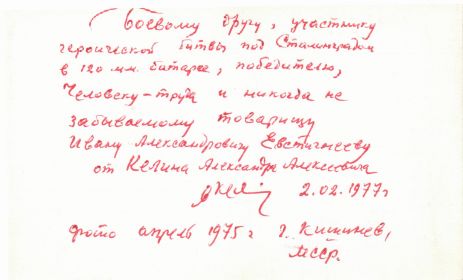 Боевому другу, участнику
героической битвы под Сталинградом
в 120 мм. батарее, победителю,
Человеку-труда и никогда не
забываемому товарищу
Ивану Александровичу Евстигнееву
от Келина Александра Алексеевича
2.02.1977г
фото апрель 1975 г г. Кишинев,
МССР.